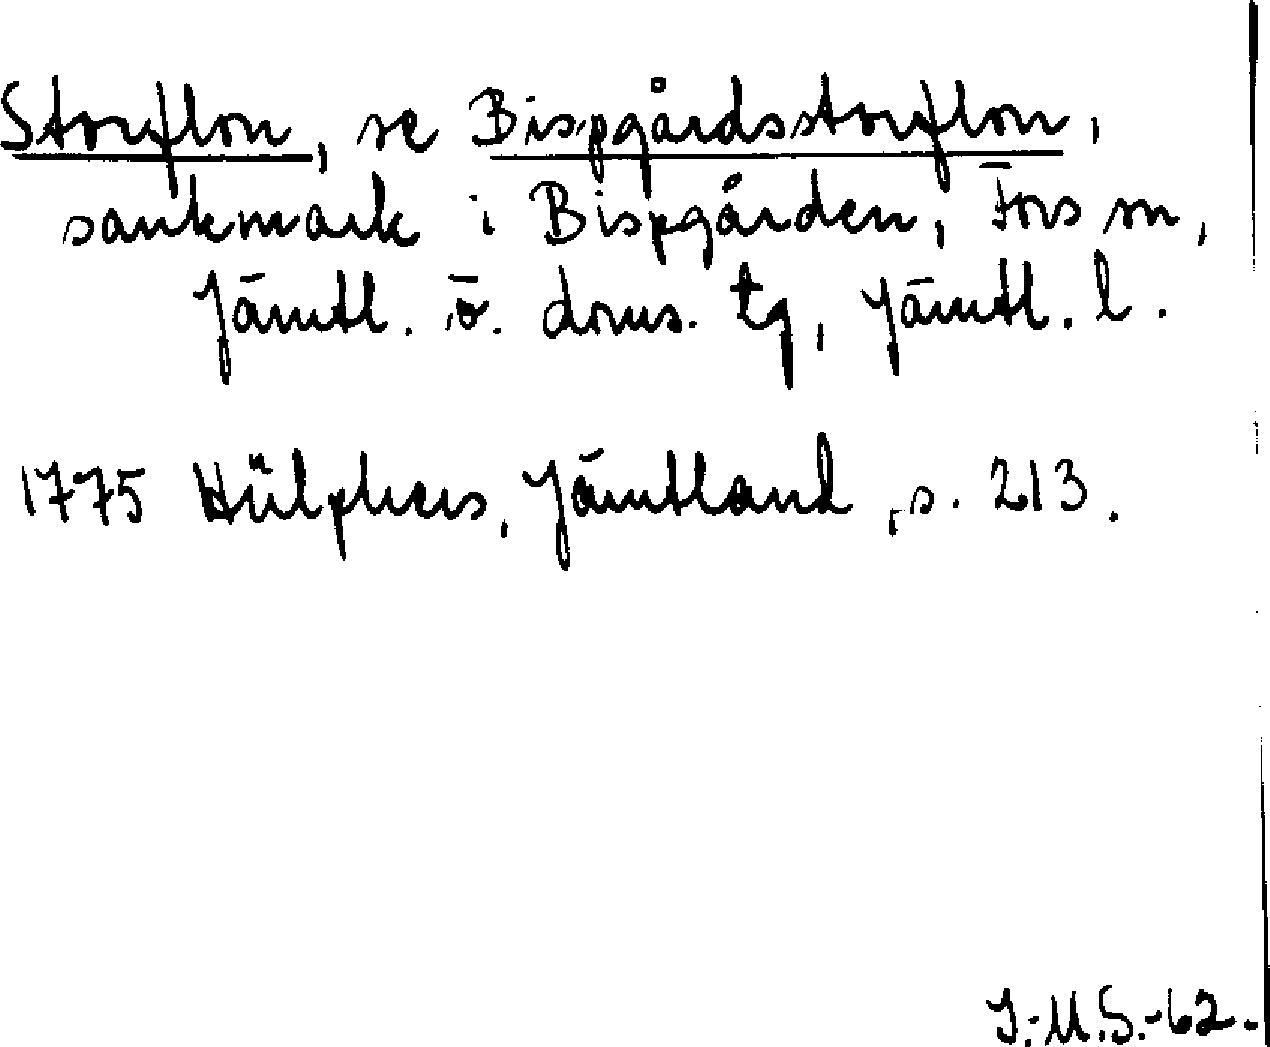 Storflon, se Bispgårdsstorflon,
sankmark i Bispgården, Fors sn,
Jämtl. ö. doms. tg, Jämtl. l.
1775 Hülphers, Jämtland, s. 213.
I.-M.S.-62.